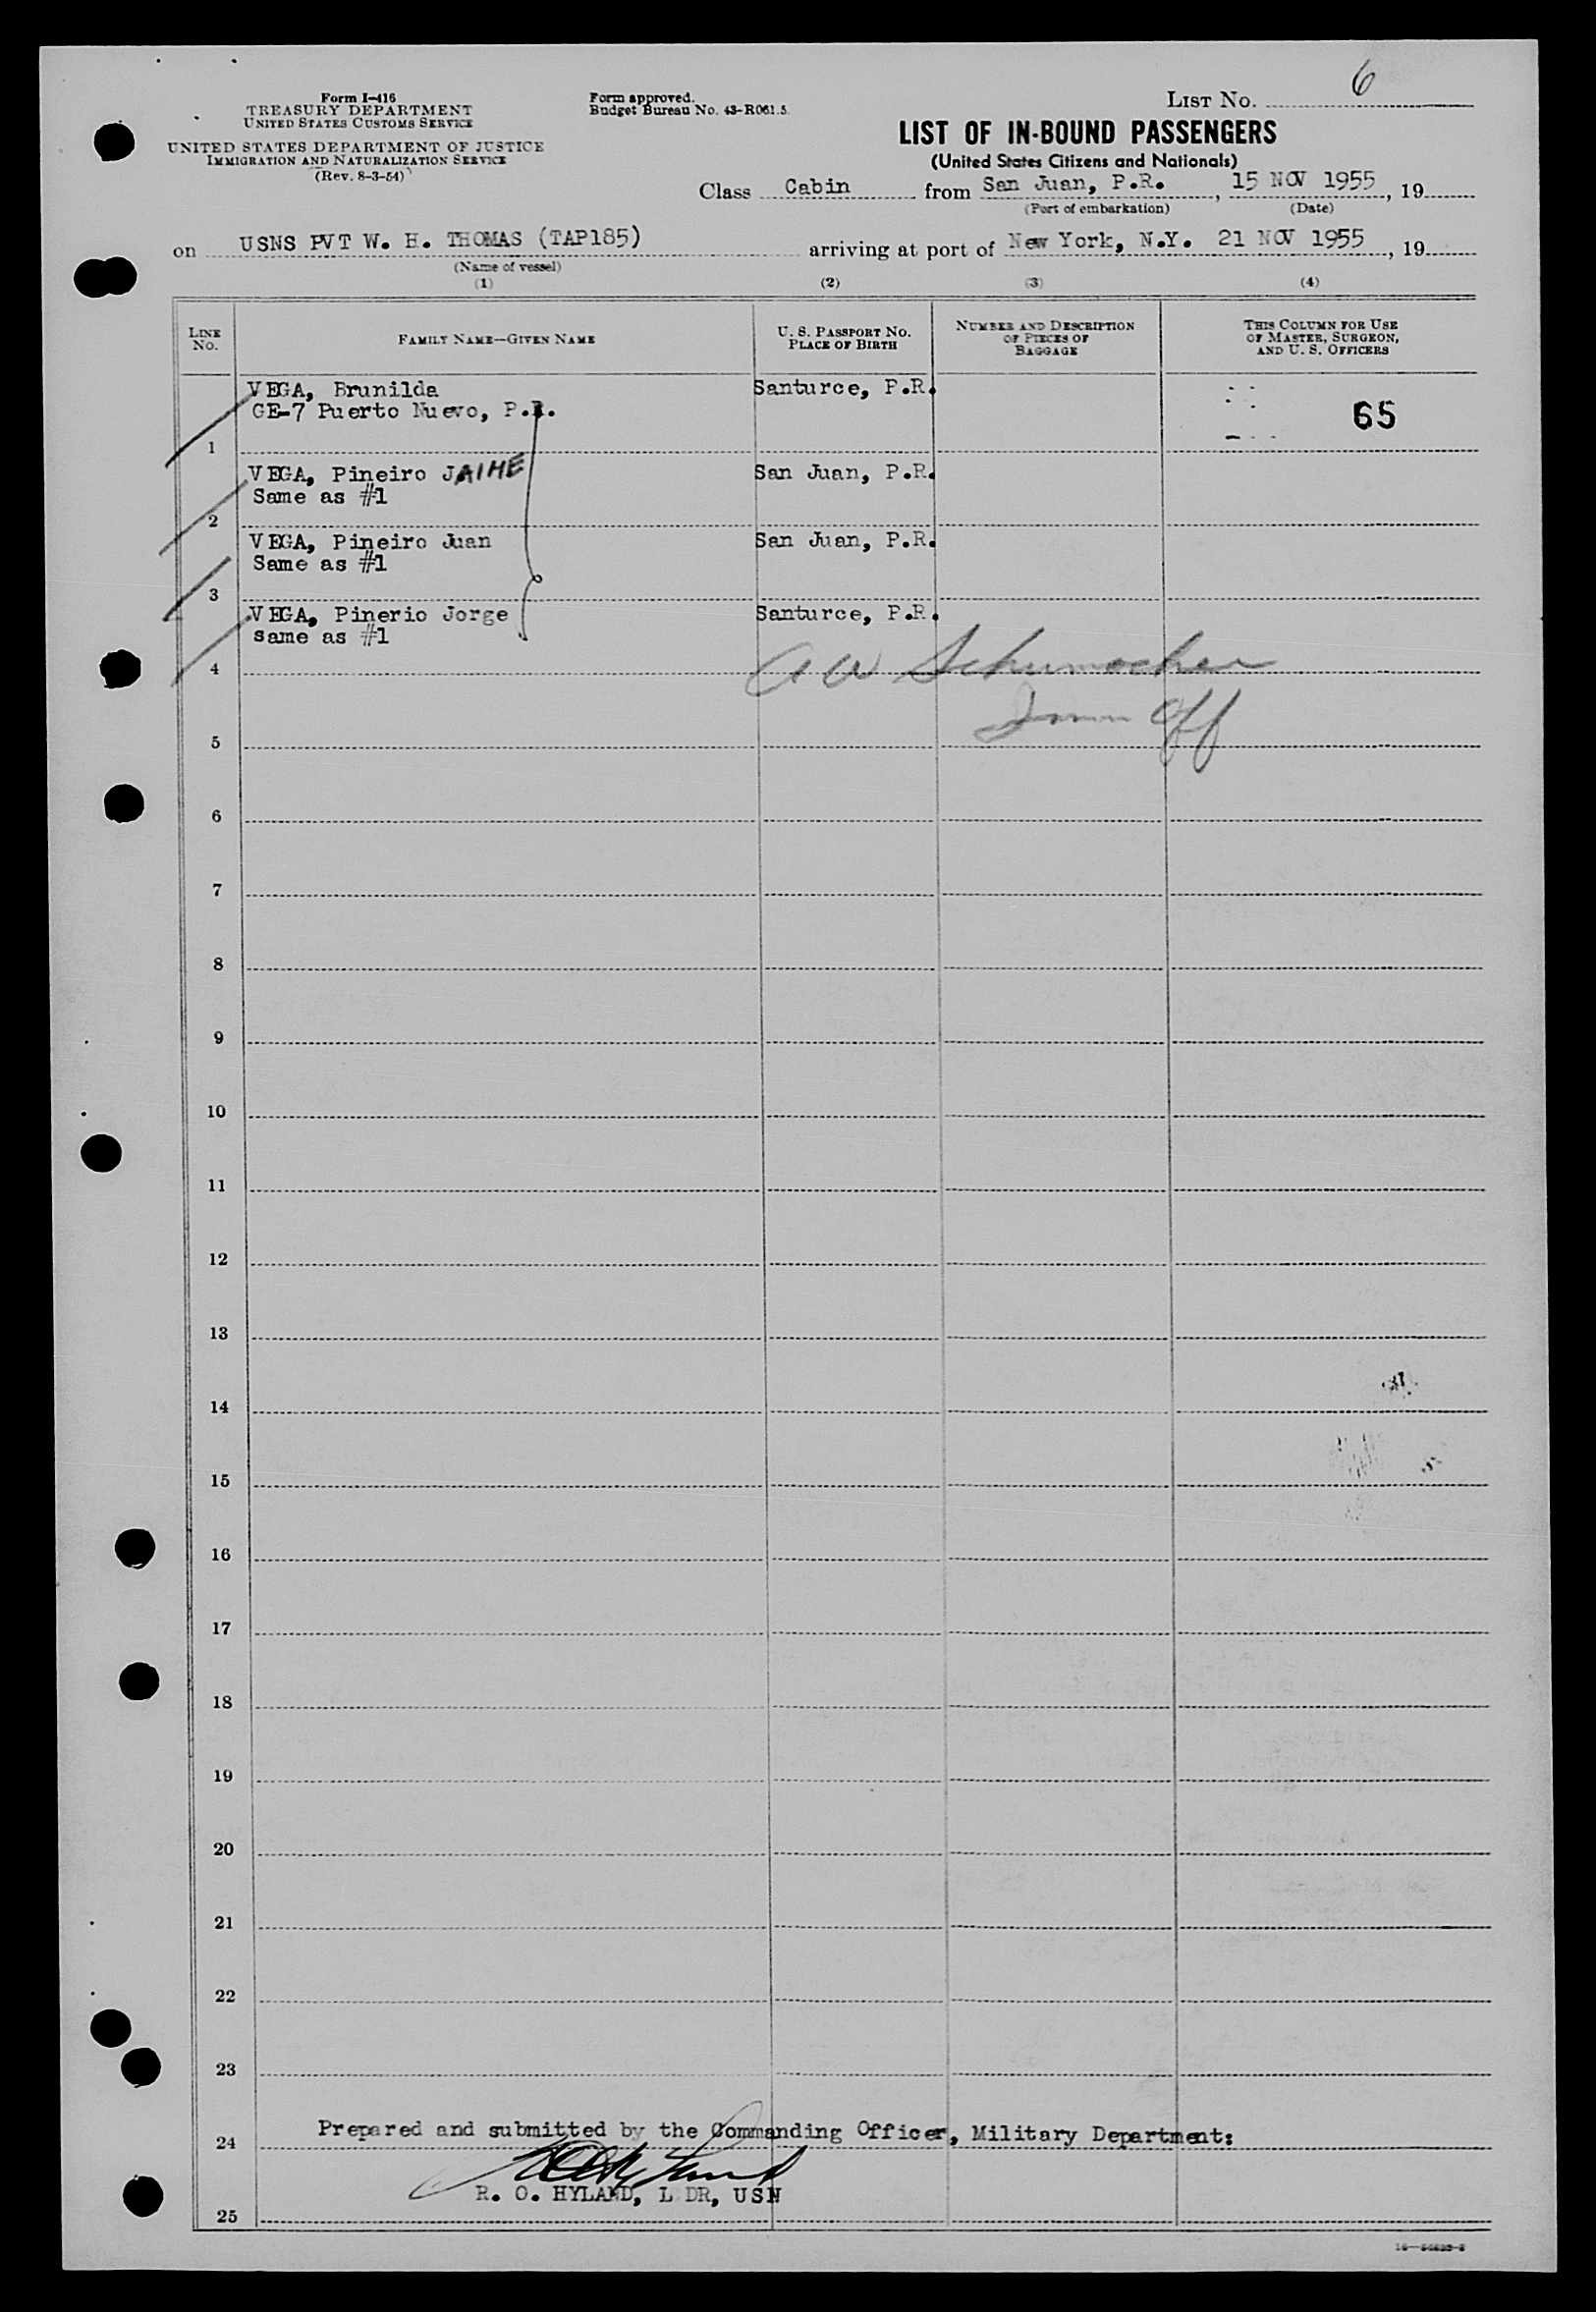 Form I-416
TREASURY DEPARTMENT
UNITED STATES CUSTOMS SERVICE
UNITED STATES DEPARTMENT OF JUSTICE
IMMIGRATION AND NATURALIZATION SERVICE
(Rev. 8-3-54)
Form approved.
Budget Bureau No. 43-R061.5.
LIST NO. 6
LIST OF IN-BOUND PASSENGERS
(United States Citizens and Nationals)
Class Cabin from San Juan, P.R., 15 NOV 1955, 19
(Port of embarkation) (Date)
on USNS PVT W. H. THOMAS (TAP185) arriving at port of New York, N.Y. 21 NOV 1955, 19
(Name of vessel)
(1) (2) (3) (4)
LINE NO. FAMILY NAME—GIVEN NAME U. S. PASSPORT NO. PLACE OF BIRTH NUMBER AND DESCRIPTION OF PIECES OF BAGGAGE THIS COLUMN FOR USE OF MASTER, SURGEON, AND U. S. OFFICERS
VEGA, Brunilda Santurce, P.R.
GE-7 Puerto Nuevo, P.R. 65
1
VEGA, Pineiro JAIME San Juan, P.R.
Same as #1
2
VEGA, Pineiro Juan San Juan, P.R.
Same as #1
3
VEGA, Pinerio Jorge Santurce, P.R.
same as #1
4 A W Schumacher
Imm Off
5
6
7
8
9
10
11
12
13
14
15
16
17
18
19
20
21
22
23
Prepared and submitted by the Commanding Officer, Military Department:
24
R. O. HYLAND, L DR, USN
25